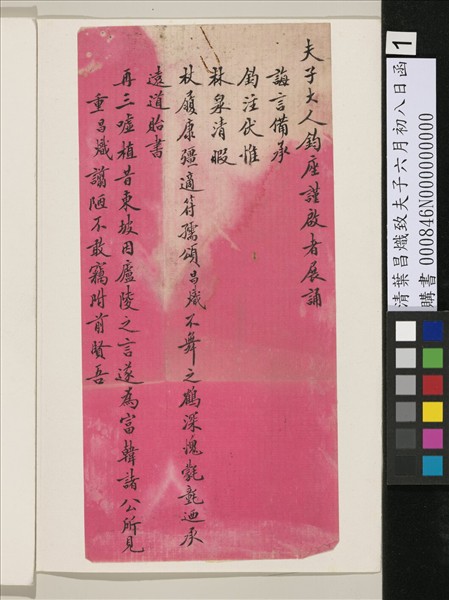 夫子大人鈞座謹啟者展誦
誨言備承
鈞注伏惟
林泉清暇
杖履康彊適符孺頌昌熾不舞之鶴深愧氋氃迺承
遠道貽書
再三噓植昔東坡因廬陵之言遂為富韓諸公所見
重昌熾謭陋不敢竊附前賢吾
1
清葉昌熾致夫子六月初八日函
購書 000846N000000000